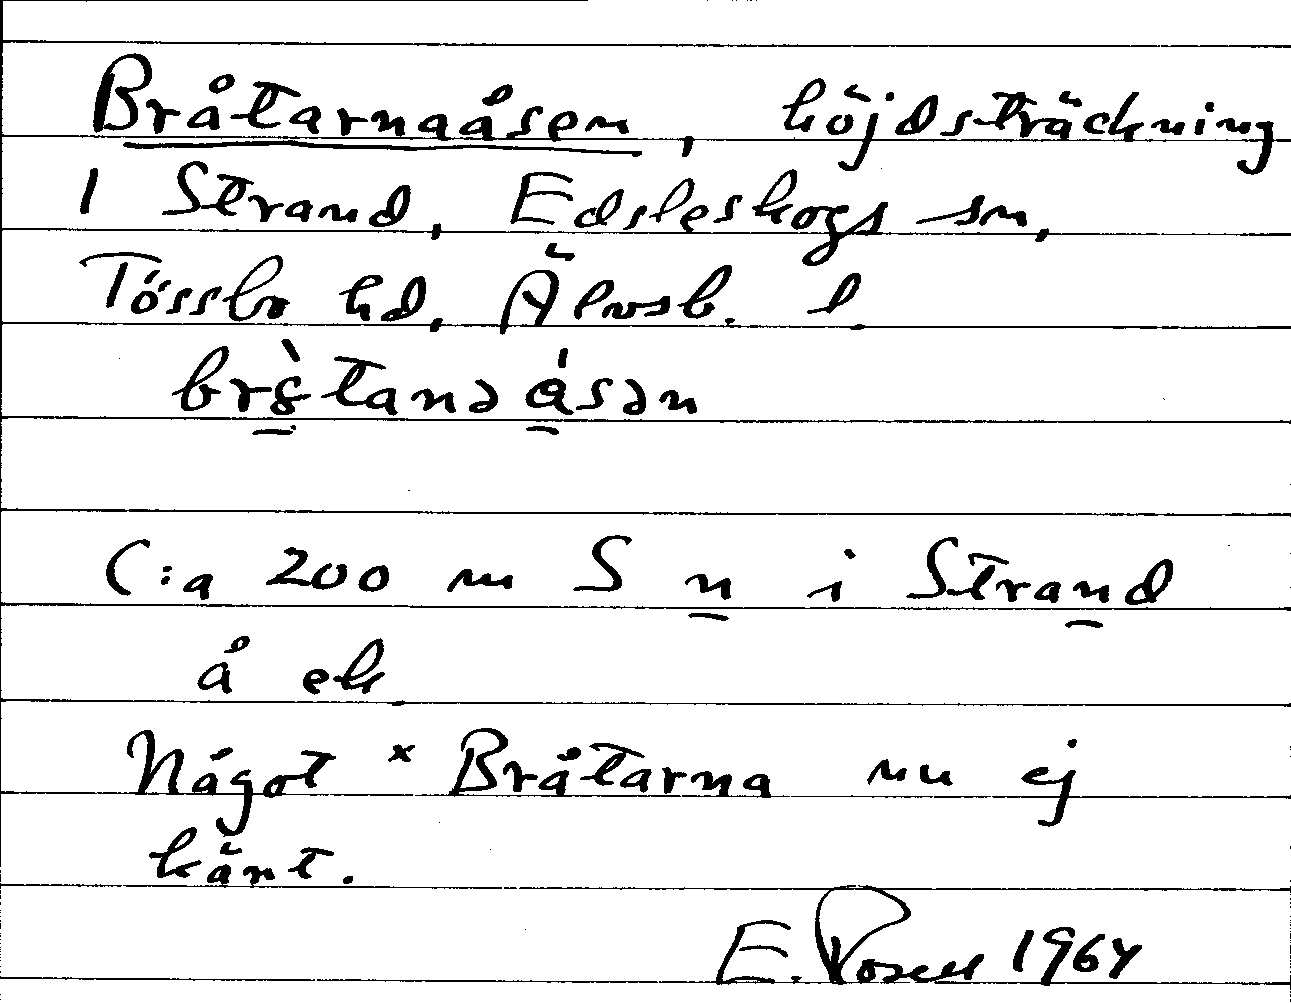 Bråtarnaåsen, höjdsträckning
i Strand, Edsleskogs sn,
Tössbo hd, Älvsb. l.
C:a 200 m S n i Strand
å ek
Något × Bråtarna nu ej
känt.
E. Rosell 1964